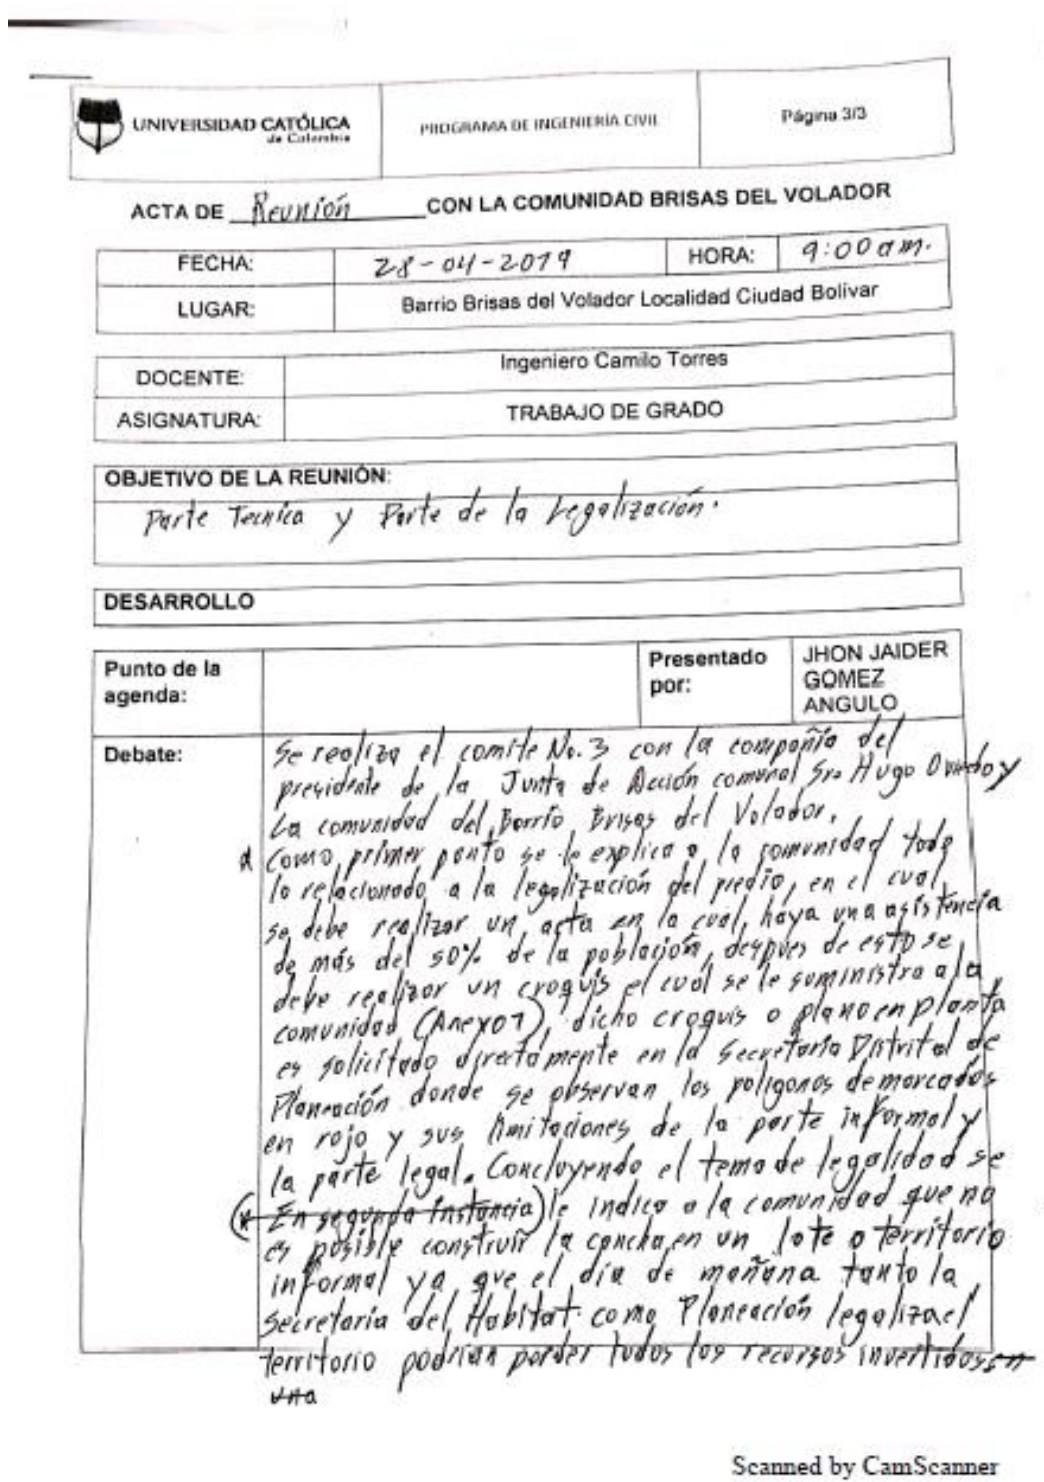 UNIVERSIDAD CATÓLICA
de Colombia
PROGRAMA DE INGENIERÍA CIVIL
Página 3/3
ACTA DE Reunión CON LA COMUNIDAD BRISAS DEL VOLADOR
FECHA: 28-04-2019 HORA: 9:00 am.
LUGAR: Barrio Brisas del Volador Localidad Ciudad Bolívar
DOCENTE: Ingeniero Camilo Torres
ASIGNATURA: TRABAJO DE GRADO
OBJETIVO DE LA REUNIÓN:
Parte Tecnica y Parte de la Legalización.
DESARROLLO
Punto de la
agenda:
Presentado
por:
JHON JAIDER
GOMEZ
ANGULO
Debate:
Se realiza el comite No. 3 con la compañia del
presidente de la Junta de Acción comunal Sro Hugo Oviedo y
La comunidad del Barrio Brisas del Volador.
Como primer punto se le explica a la comunidad todo
lo relacionado a la legalización del predio, en el cual
se debe realizar un acta en la cual haya una asistencia
de más del 50% de la población, despues de esto se
debe realizar un croquis el cuál se le suministra a la
comunidad (Anexo 1), dicho croquis o plano en planta
es solicitado directamente en la Secretaria Distrital de
Planeación donde se observan los poligonos demarcados
en rojo y sus limitaciones de la parte informal y
la parte legal. Concluyendo el tema de legalidad se
(* En segunda instancia) le indica a la comunidad que no
es posible construir la cancha en un lote o territorio
informal ya que el día de mañana tanto la
secretaria del Habitat como Planeación legaliza el
territorio podrían perder todos los recursos invertidos en
una
Scanned by CamScanner